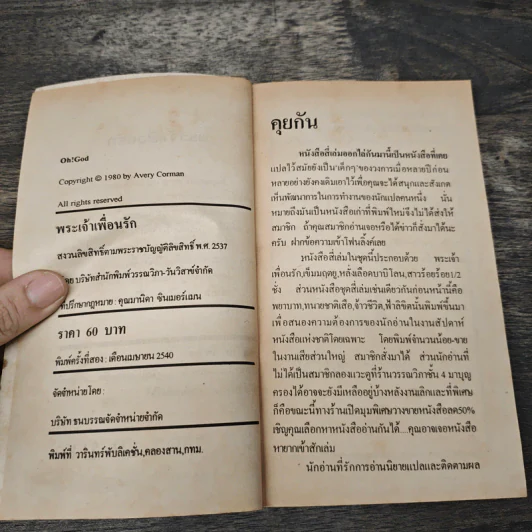 Oh!God
Copyright © 1980 by Avery Corman
All rights reserved
พระเจ้าเพื่อนรัก
สงวนลิขสิทธิ์ตามพระราชบัญญัติลิขสิทธิ์ พ.ศ. 2537
โดย บริษัทสำนักพิมพ์วรรณวิภา-วันวิสาข์จำกัด
ที่ปรึกษากฎหมาย : คุณมานิดา ซินเมอร์แมน
ราคา 60 บาท
พิมพ์ครั้งที่สอง : เดือนเมษายน 2540
จัดจำหน่ายโดย :
บริษัท ธนบรรณจัดจำหน่ายจำกัด
พิมพ์ที่ วารินทร์พับลิเคชั่น,คลองสาน,กทม.
คุยกัน
หนังสือสี่เล่มออกไล่กันมานี้เป็นหนังสือที่เคย
แปลไว้สมัยยังเป็น'เด็กๆ'ของวงการเมื่อหลายปีก่อน
หลายอย่างยังคงเดิมเอาไว้เพื่อคุณจะได้สนุกและสังเกต
เห็นพัฒนาการในการทำงานของนักแปลคนหนึ่ง นั่น
หมายถึงมันเป็นหนังสือเก่าที่พิมพ์ใหม่จึงไม่ได้ส่งให้
สมาชิก ถ้าคุณสมาชิกอ่านเจอหรือได้ข่าวก็สั่งมาได้นะ
ครับ ฝากข้อความเข้าโฟนลิ้งค์เลย
หนังสือสี่เล่มในชุดนี้ประกอบด้วย พระเจ้า
เพื่อนรัก,ขุ่มมฤตยู,หลังเลือดบาบิโลน,สาวร้อยร้อย1/2
ชั่ง ส่วนหนังสือชุดสี่เล่มเช่นเดียวกันก่อนหน้านี้คือ
พยาบาท,ทนายชาติเสือ,จ้าวชีวิต,ฟ้าลิขิตนั้นพิมพ์ขึ้นมา
เพื่อสนองความต้องการของนักอ่านในงานสัปดาห์
หนังสือแห่งชาติโดยเฉพาะ โดยพิมพ์จำนวนน้อย-ขาย
ในงานเสียส่วนใหญ่ สมาชิกสั่งมาได้ ส่วนนักอ่านที่
ไม่ได้เป็นสมาชิกลองแวะดูที่ร้านวรรณวิภาชั้น 4 มาบุญ
ครองได้อาจจะยังมีเหลืออยู่บ้างหลังงานเลิกและที่พิเศษ
ก็คือขณะนี้ทางร้านเปิดมุมพิเศษวางขายหนังสือลด50%
เชิญคุณเลือกหาหนังสืออ่านกันได้...คุณอาจเจอหนังสือ
หายากเข้าสักเล่ม
นักอ่านที่รักการอ่านนิยายแปลและติดตามผล